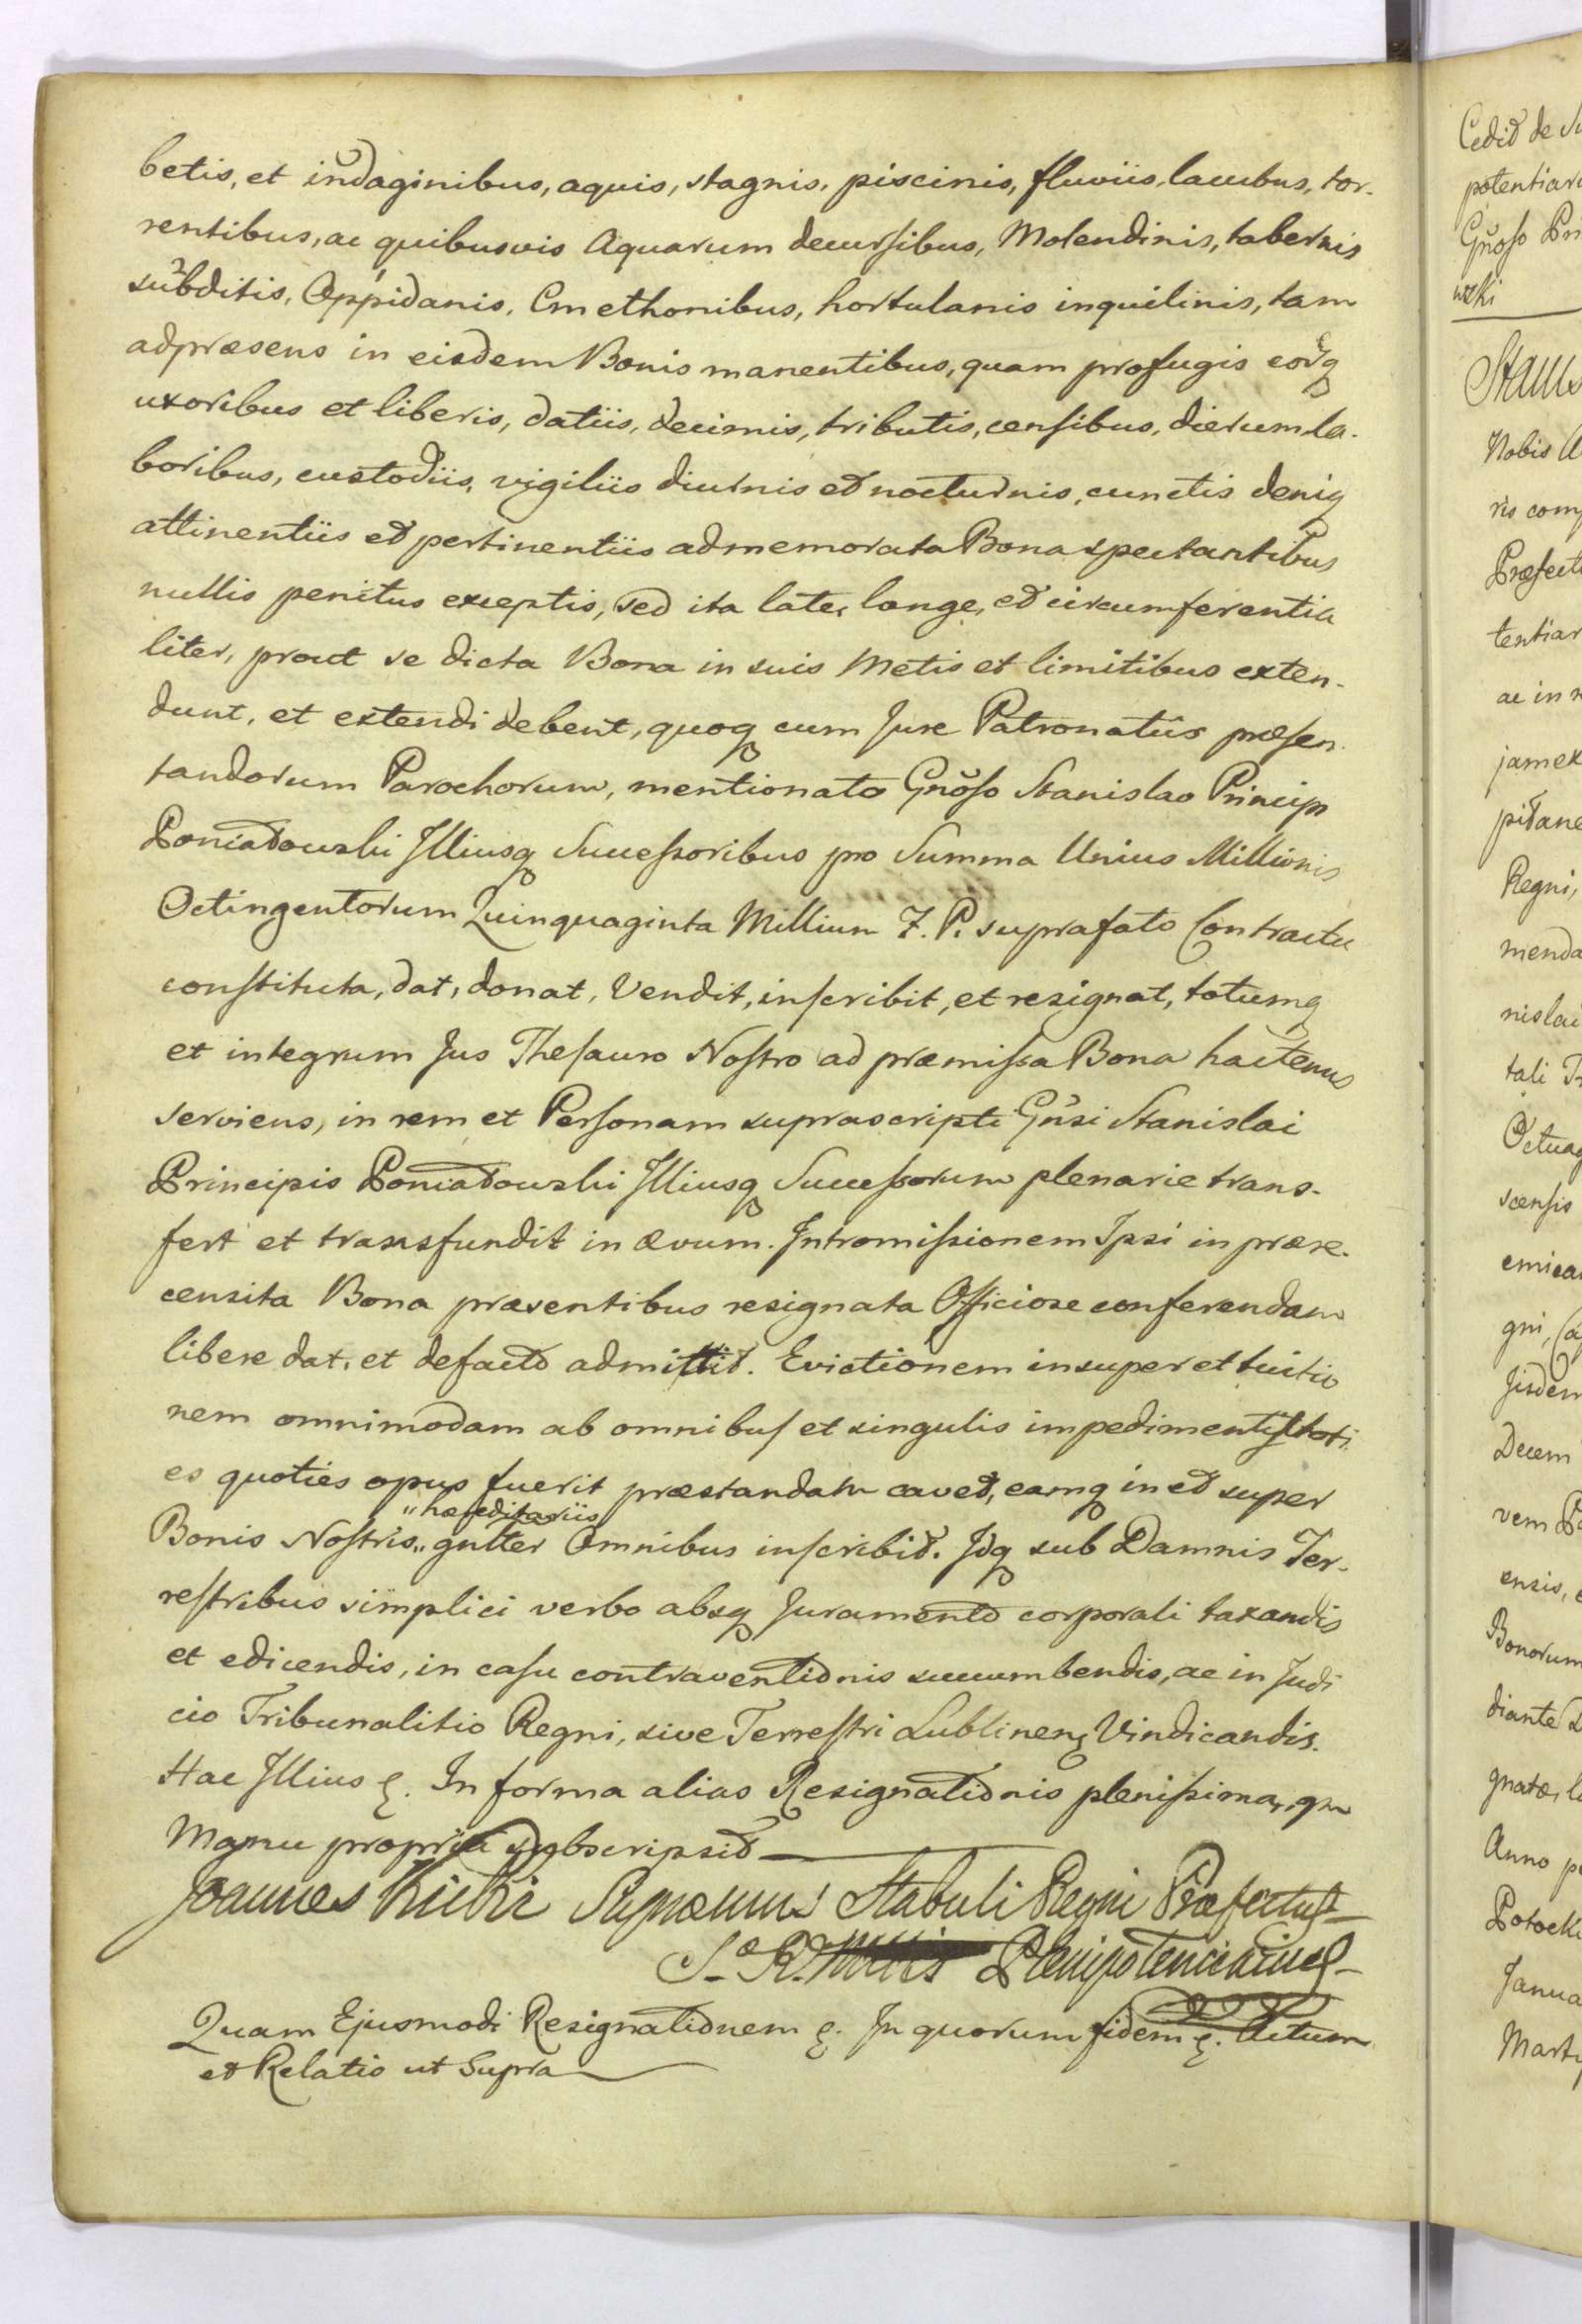 betis, et indaginibus, aquis, stagnis, piscinis, fluviis, lacubus, tor-
rentibus, ac quibusvis Aquarum decursibus, Molendinis, tabernis
subditis, Oppidanis, Cmethonibus, hortulanis inquilinis, tam
adpraesens in eisdem Bonis manentibus, quam profugis eorq
uxoribus et liberis, datiis, decimis, tributis, censibus, dierum la-
boribus, custodiis, vigiliis diurnis et nocturnis, cunctis deniq
attinentiis et pertinentiis ad memorata Bona spectantibus
nullis penitus exceptis, sed ita late, longe, et circumferentia
liter, prout se dicta Bona in suis Metis et limitibus exten-
dunt, et extendi debent, quoq cum Jure Patronatûs praesen-
tandorum Parochorum, mentionato Gnõso Stanislao Principi
Poniatowski Illiusq Successoribus pro Summa Unius Millionis
Octingentorum Quinquaginta Millium F. P. suprafato Contractu
constituta, dat, donat, Vendit, inscribit, et resignat, totumq
et integrum Jus Thesauro Nostro ad praemissa Bona hactenus
serviens, in rem et Personam suprascripti Gnsi Stanislai
Principis Poniatowski Illiusq Successorum plenarie trans-
fert et transfundit in aevum. Intromissionem Ipsi in prae-
censita Bona praesentibus resignata Officiose conferendam
libere dat, et defacto admittit. Evictionem insuper et tuitio
nem omnimodam ab omnibus et singulis impedimentis toti-
es quoties opus fuerit praestandam cavet, eamq in et super
Bonis Nostris „haereditariis„ gnlter Omnibus inscribit. Idq sub Damnis Ter-
restribus simplici verbo absq Juramento corporali taxandis
et edicendis, in casu contraventionis succumbendis, ac in Judi
cio Tribunalitio Regni, sive Terrestri Lublinen, Vindicandis.
Hac Illius &. In forma alias Resignationis plenissima, qm
Manu propria subscripsit
Joannes Kicki Supraemus Stabuli Regni Praefectus
S. R. Mttis Plenipotenciarius
Quam Ejusmodi Resignationem &. In quorum fidem &. Actum
et Relatio ut Supra
Cedit de
potentiar
Gnõso Pn
wski
Stanis
Nobis
ris com
Praefect
tentiar
ac in
jam ex
pidane
Regni,
menda
nislai
tali
Octuag
scensis
emica
gni,
Jisdem
Decem
vem
ensis,
Bonorum
diante
gnatae,
Anno
Potocki
Janua
Marty